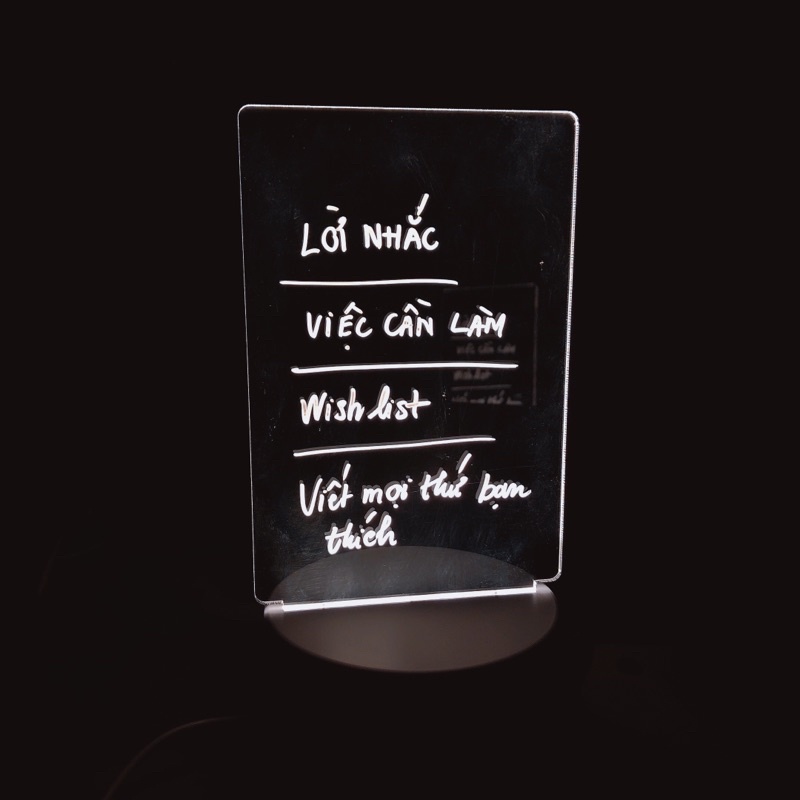 LỜI NHẮC
VIỆC CẦN LÀM
Wish list
Viết mọi thứ bạn
thích